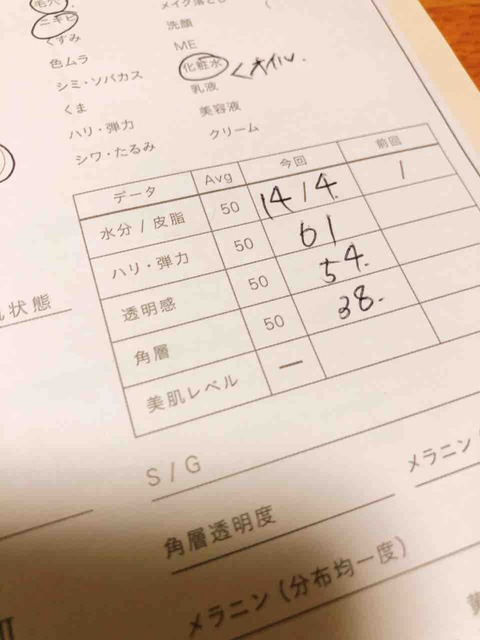 毛穴
ニキビ
くすみ
色ムラ
シミ・ソバカス
くま
ハリ・弾力
シワ・たるみ
メイク落とし
洗顔
ME
化粧水 くオイル.
乳液
美容液
クリーム
データ Avg 今回 前回
水分 / 皮脂 50 14 / 4. /
ハリ・弾力 50 61
透明感 50 54.
角層 50 38.
美肌レベル —
状態
S / G
メラニン
角層透明度
メラニン (分布均一度)